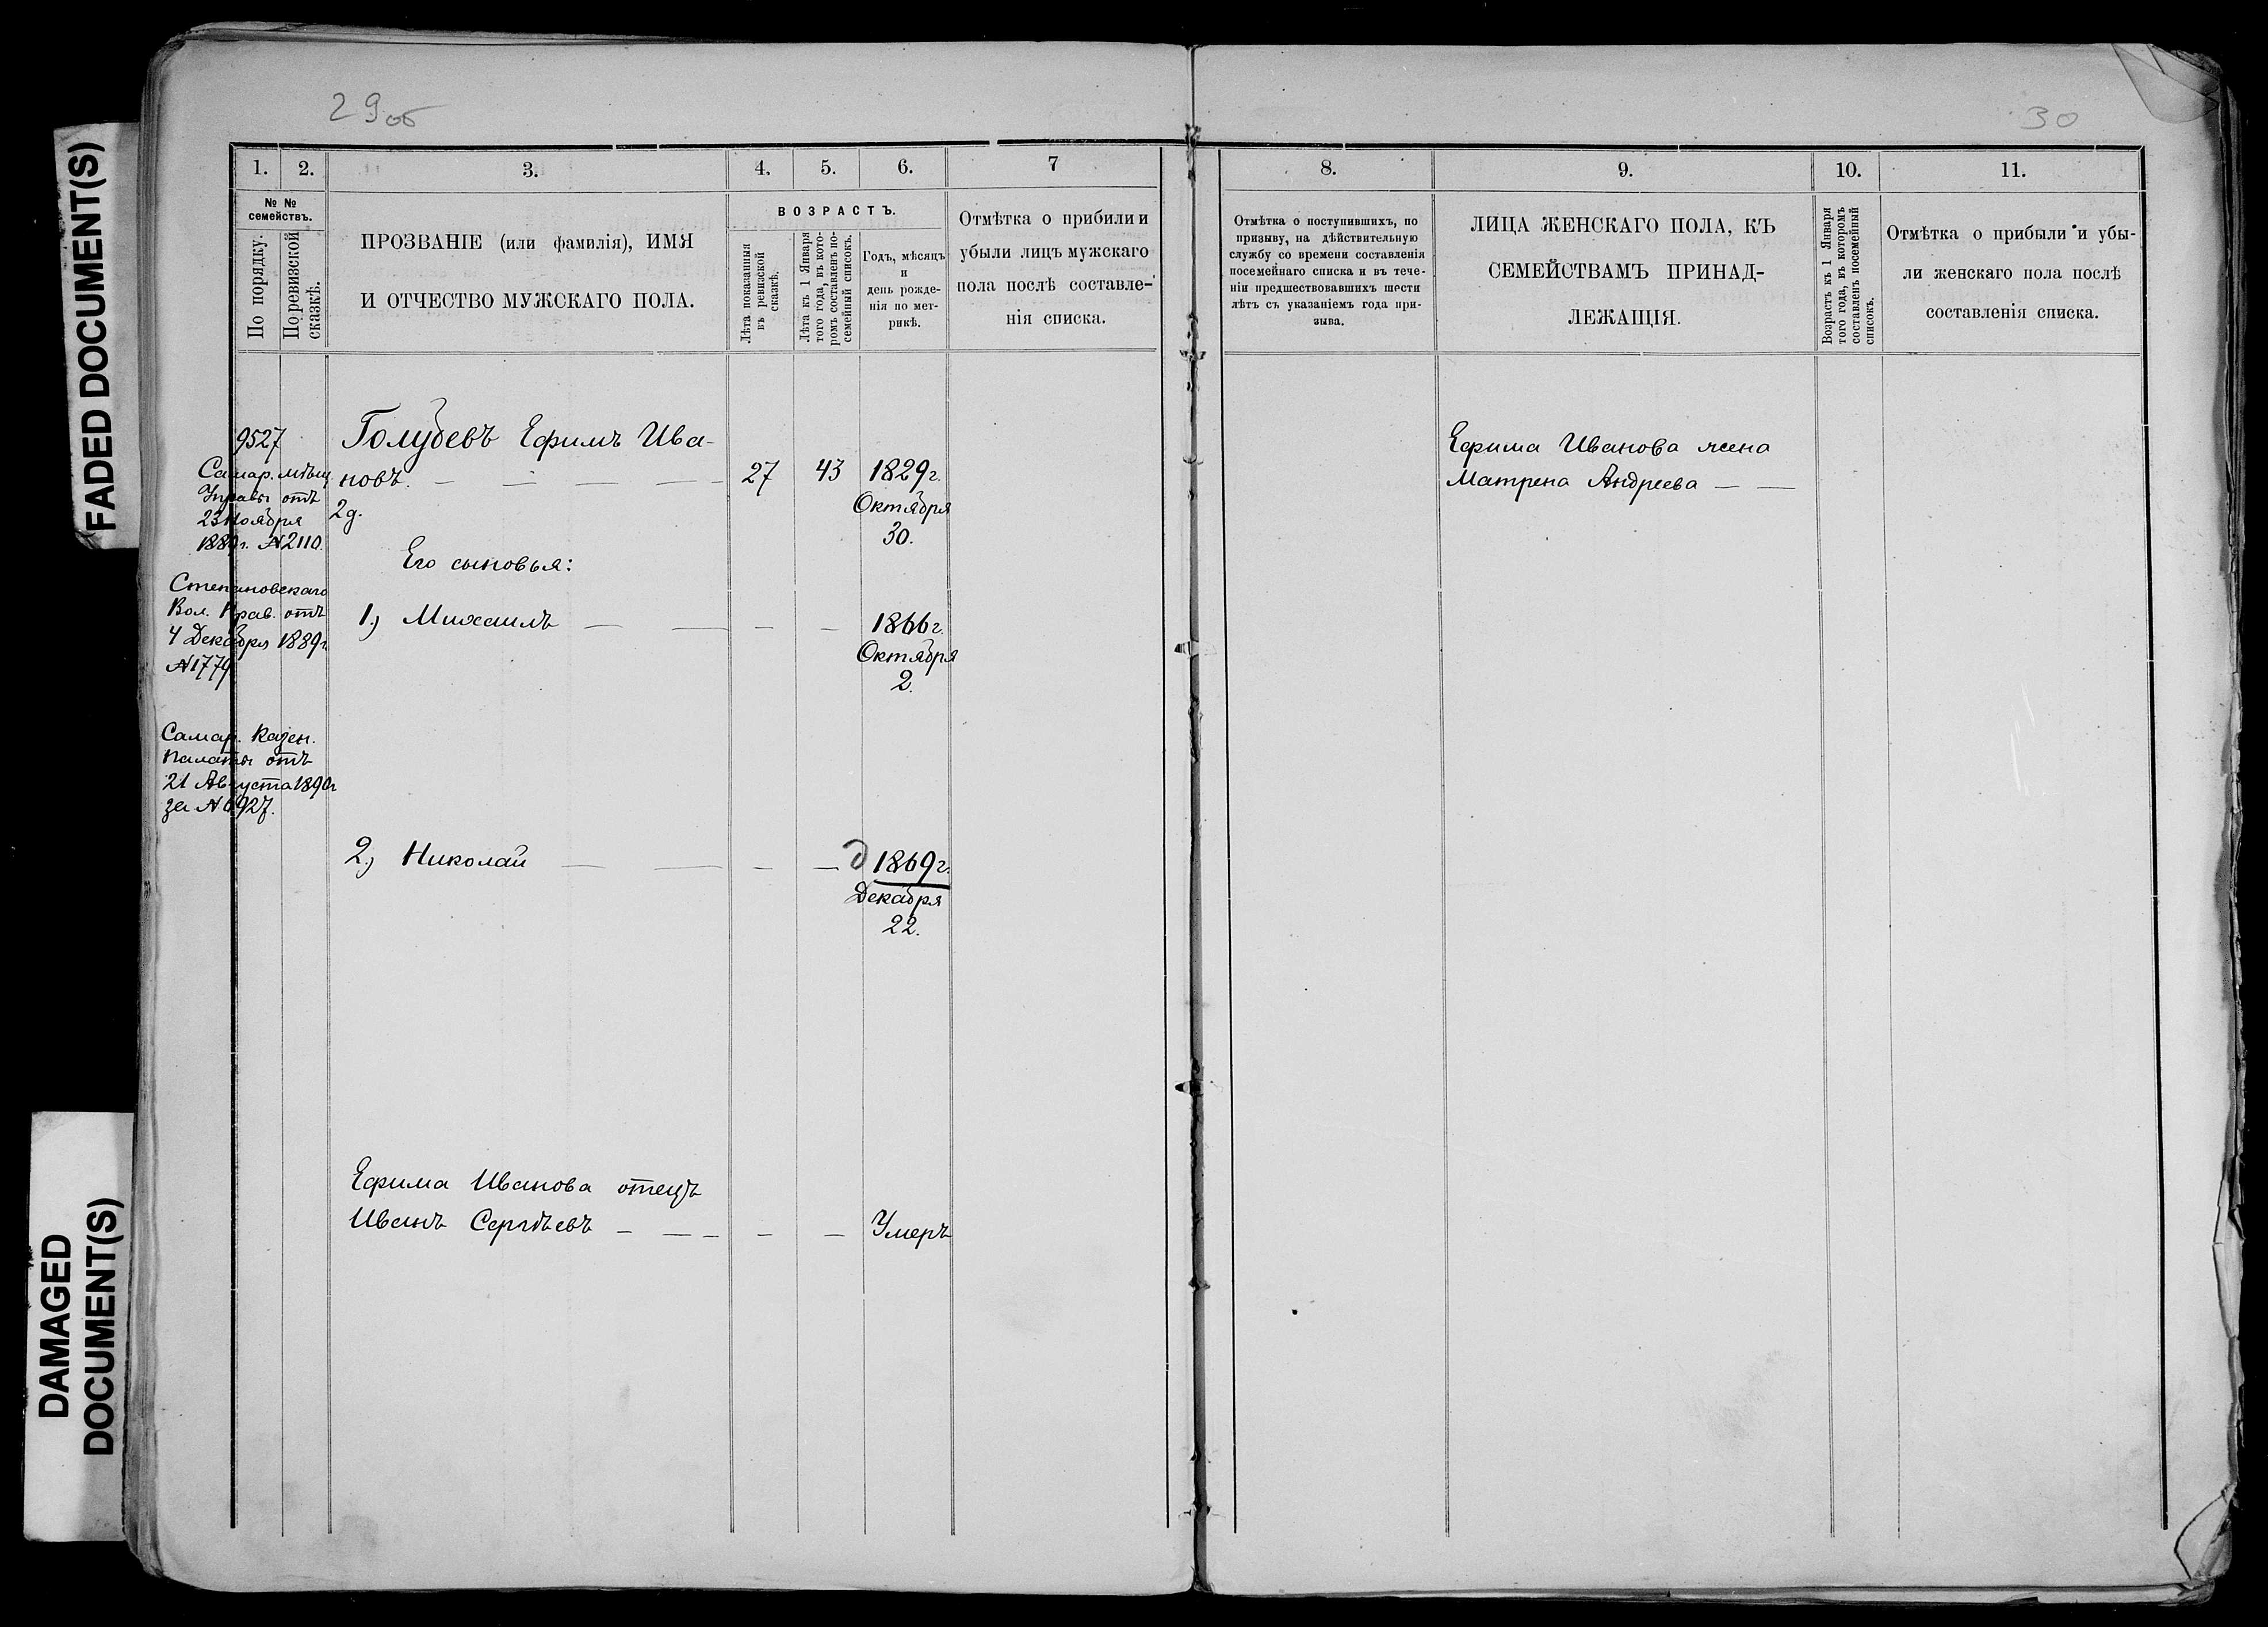 FADED DOCUMENT(S)
DAMAGED
DOCUMENT(S)
29об
1.
2.
3.
4.
5.
6.
7
№ №
семействъ.
По порядку.
По ревизской
сказкѣ.
ПРОЗВАНІЕ (или фамилія), ИМЯ
И ОТЧЕСТВО МУЖСКАГО ПОЛА.
ВОЗРАСТЪ.
Лѣта показанныя
въ ревизской
сказкѣ.
Лѣта къ 1 Января
того года, въ кото-
ромъ составленъ по-
семейный списокъ.
Годъ, мѣсяцъ
и
день рожде-
нія по мет-
рикѣ.
Отмѣтка о прибыли и
убыли лицъ мужскаго
пола послѣ составле-
нія списка.
9527
Самар. мѣщ.
Управы отъ
23 Ноября
1889г. №2110.
Степановскаго
Вол. Прав. отъ
4 Декабря 1889г
№1779
Самар. Казен.
Палаты отъ
21 Августа 1890г
за №6927.
Голубевъ Ефимъ Ива-
новъ. — — — — 27 43 1829г.
2д.
Октября
30.
Его сыновья:
1.) Михаилъ — — — — 1866г.
Октября
2.
2.) Николай — — — — 1869г.
Декабря
22.
Ефима Иванова отецъ
Иванъ Сергѣевъ — — — — — Умеръ
30
8.
9.
10.
11.
Отмѣтка о поступившихъ, по
призыву, на дѣйствительную
службу со времени составленія
посемейнаго списка и въ тече-
ніи предшествовавшихъ шести
лѣтъ съ указаніемъ года при-
зыва.
ЛИЦА ЖЕНСКАГО ПОЛА, КЪ
СЕМЕЙСТВАМЪ ПРИНАД-
ЛЕЖАЩІЯ.
Возрастъ къ 1 Января
того года, въ которомъ
составленъ посемейный
списокъ.
Отмѣтка о прибыли и убы-
ли женскаго пола послѣ
составленія списка.
Ефима Иванова жена
Матрена Андреева — —